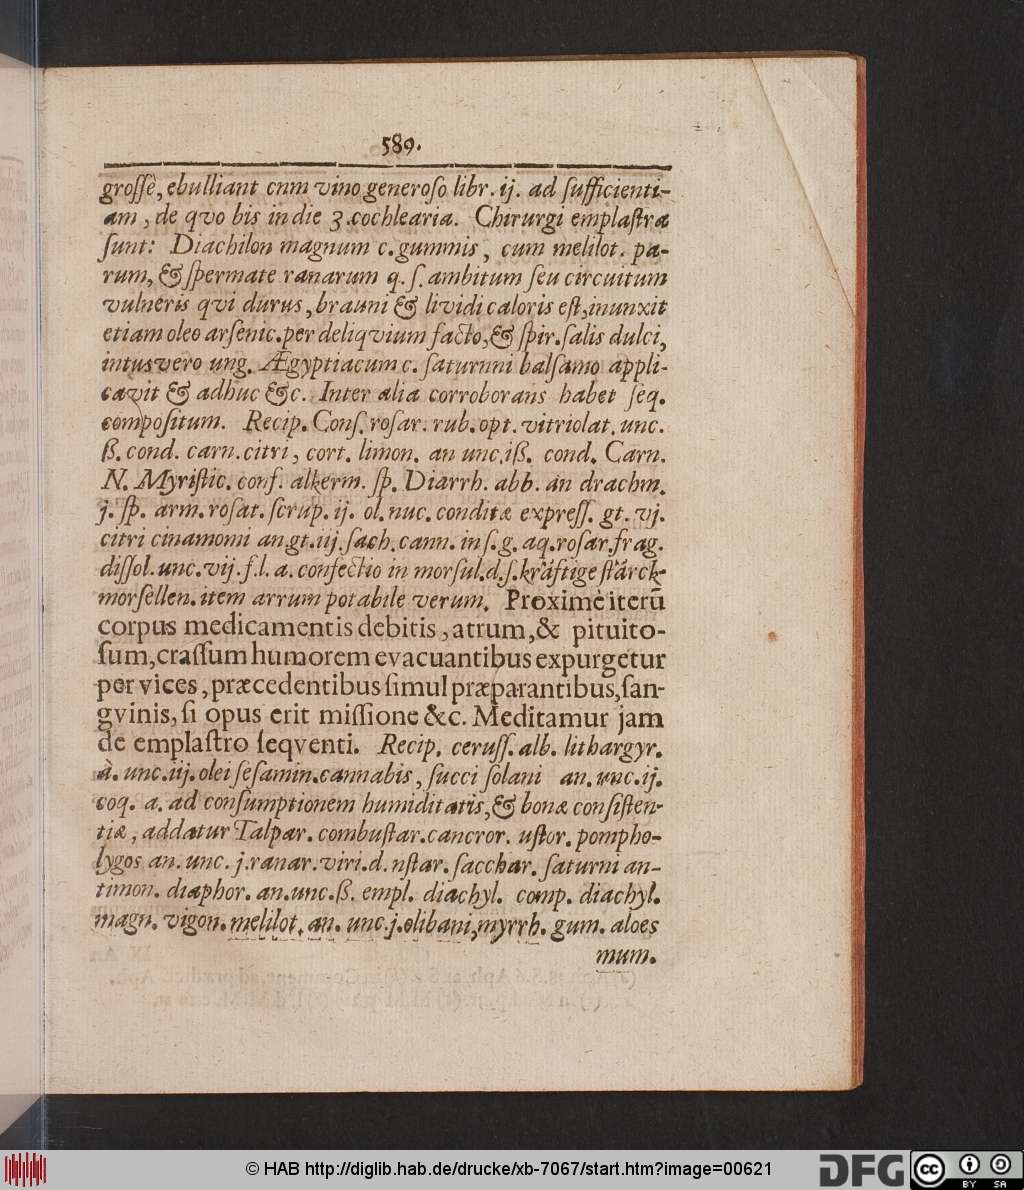 589.
groſſè, ebulliant cnm vino generoſo libr. ij. ad ſufficienti-
am, de qvo bis in die 3. cochlearia. Chirurgi emplaſtra
ſunt: Diachilon magnum c. gummis, cum melilot. pa-
rum, & ſpermate ranarum q. ſ. ambitum ſeu circuitum
vulneris qvi durus, brauni & lividi caloris eſt, inunxit
etiam oleo arſenic. per deliqvium facto, & ſpir. ſalis dulci,
intus vero ung. Ægyptiacum c. ſaturnni balſamo appli-
cavit & adhuc &c. Inter alia corroborans habet ſeq.
compoſitum. Recip. Conſ. roſar. rub. opt. vitriolat. unc.
ß. cond. carn. citri, cort. limon. an unc. iß. cond. Carn.
N. Myriſtic. conf. alkerm. ſp. Diarrh. abb. an drachm.
j. ſp. arm. roſat. ſcrup. ij. ol. nuc. conditæ expreſſ. gt. vj.
citri cinamomi an. gt. iij. ſach. cann. in ſ. g. aq. roſar. frag.
diſſol. unc. vij. f. l. a. confectio in morſul. d. ſ. kräftige ſtärck-
morſellen. item arrum potabile verum. Proximè iterū
corpus medicamentis debitis, atrum, & pituito-
ſum, craſſum humorem evacuantibus expurgetur
per vices, præcedentibus ſimul præparantibus, ſan-
gvinis, ſi opus erit miſſione &c. Meditamur jam
de emplaſtro ſeqventi. Recip. ceruſſ. alb. lithargyr.
à. unc. iij. olei ſeſamin. cannabis, ſucci ſolani an. unc. ij.
coq. a. ad conſumptionem humiditatis, & bonæ conſiſten-
tiæ, addatur Talpar. combuſtar. cancror. uſtor. pompho-
lygos an. unc. j. ranar. viri. d. nſtar. ſacchar. ſaturni an-
timon. diaphor. an. unc. ß. empl. diachyl. comp. diachyl.
magn. vigon. melilot. an. unc. j. olibani, myrrh. gum. aloes
mum.
© HAB http://diglib.hab.de/drucke/xb-7067/start.htm?image=00621
DFG
cc BY SA